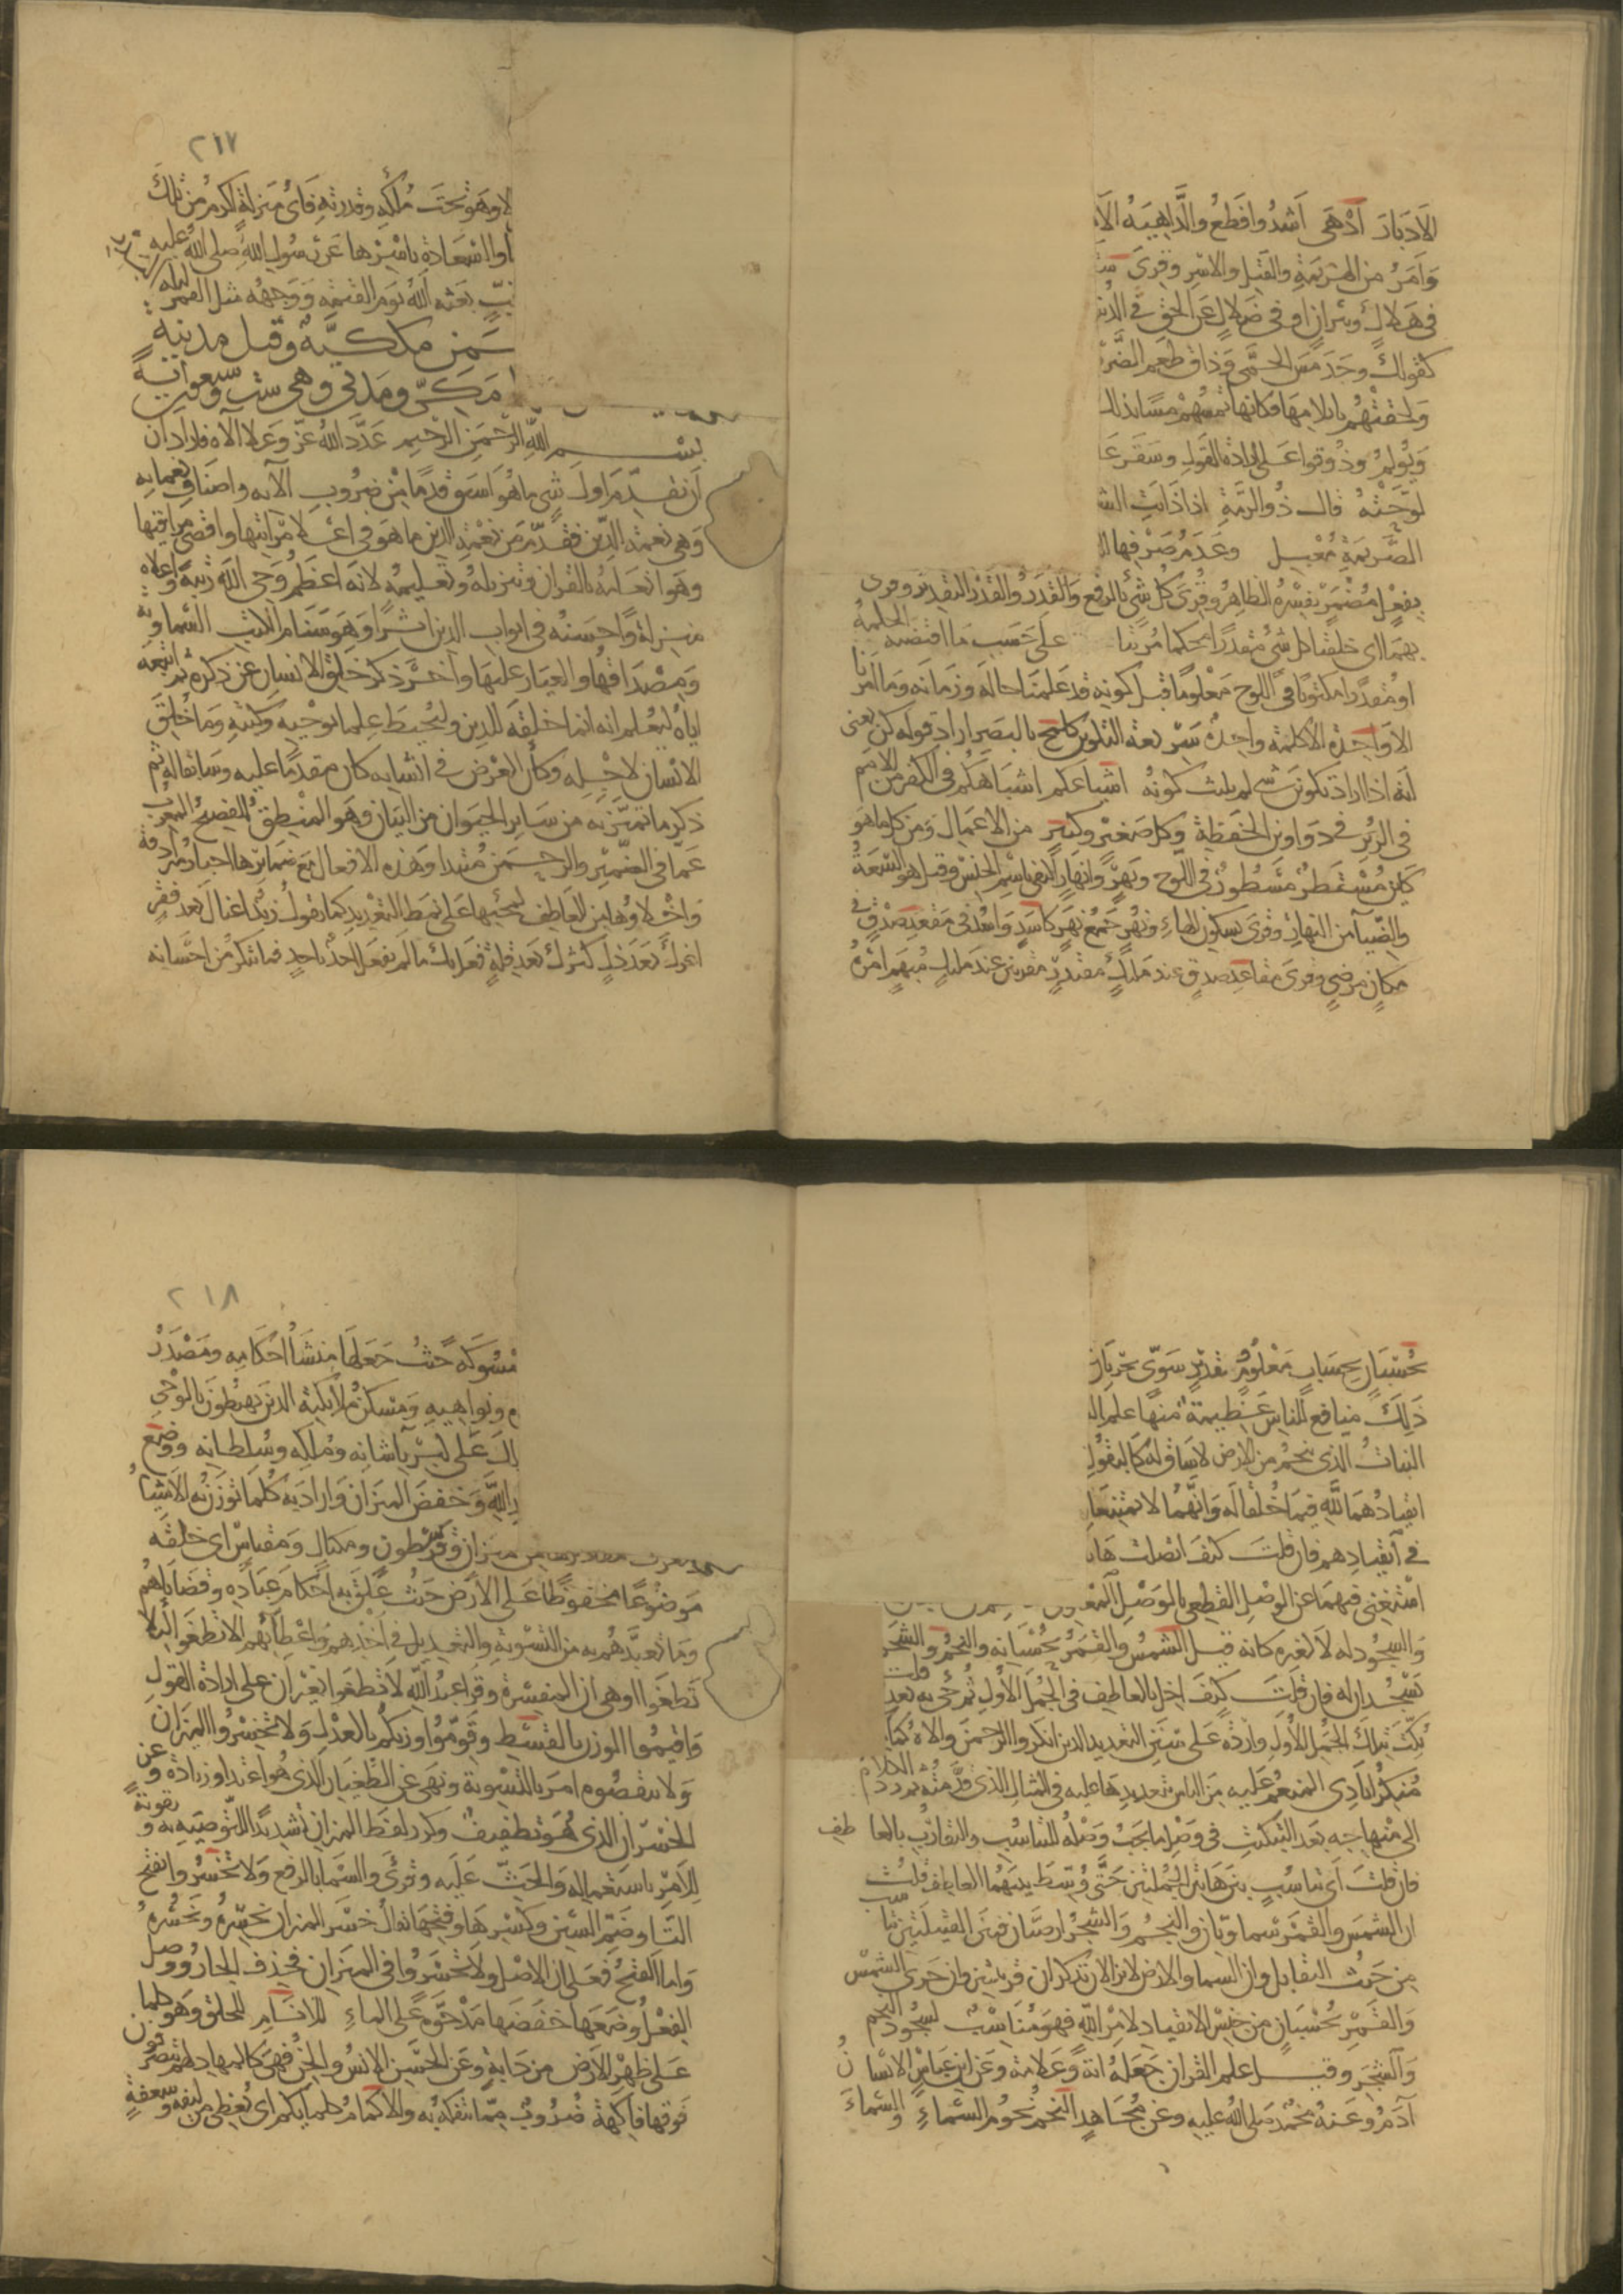 الادبار ادهى اشد وافظع والداهية الا
وامر من الهزيمة والقتل والاسر وقرئ
في هلاك ونيران او في ضلال عن الحق في الدنيا
كقولك وجد مس الحمى وذاق طعم الضر
ولحقتهم بايلامها فكانها تمسهم مسا بذلك
ويولم وذوقوا على ارادة القول وسقر
لوحته قال ذو الرمة اذا ذابت الشـ
الصريمة معبل وعدم صرفها
بفعل مضمر يفسره الظاهر وقرئ كل شئ بالرفع والقدر والقدر التقدير وقرئ
بهما اى خلقنا كل شئ مقدرا محكما مرتبا على حسب ما اقتضته الحكمة
او مقدرا مكتوبا في اللوح معلوما قبل كونه قد علمنا حاله وزمانه وما امرنا
الا واحدة الا كلمة واحدة سريعة التكوين كلمح بالبصر اراد قوله كن يعنى
انه اذا اراد تكوين شئ لم يلبث كونه اشياعكم اشباهكم في الكفر من الامم
في الزبر في دواوين الحفظة وكل صغير وكبير من الاعمال ومن كل ما هو
كاين مستطر مسطور في اللوح ونهر وانهار اكتفى باسم الجنس وقيل هو السعة
والضيآ من النهار وقرئ بسكون الهاء ونهر جمع نهر كاسد واسد في مقعد صدق في
مكان مرضي وقرئ مقاعد صدق عند مليك مقتدر مقربين عند مليك مبهم امره
٢١٧
الا وهو تحت ملكه وقدرته فاى منزلة اكرم من تلك
والسعادة باسرها عن رسول الله صلى الله عليه
بعثه الله يوم القيمة ووجهه مثل القمر ليلة
مكية وقيل مدنية
مكي ومدني وهي ست وسبعون آية
بسم الله الرحمن الرحيم عدد الله عز وعلا آلاه فاراد ان
ان يقدم اول شئ ما هو اسبق قدما من ضروب آلائه واصناف نعمايه
وهي نعمة الدين فقدم من نعمة الدين ما هو في اعلا مراتبها واقصى مراقيها
وهو انعامه بالقران وتنزيله وتعليمه لانه اعظم وحى الله رتبة واعلاه
منزلة واحسنه في ابواب الدين اثرا وهو سنام الكتب السماوية
ومصداقها والعيار عليها واخر ذكر خلق الانسان عن ذكره ثم اتبعه
اياه ليعلم انه انما خلقه للدين وليحيط علما بوحيه وكتبه وما خلق
الانسان لاجله وكان الغرض في انشايه كان مقدما عليه وسابقا له ثم
ذكر ما تميز به من ساير الحيوان من البيان وهو المنطق الفصيح المعرب
عما في الضمير والرحمن مبتدا وهذه الافعال مع ضمايرها اخبار مترادفة
واخلاوها من العاطف لمجيها على نمط التعديد كما تقول زيد اغناك بعد فقر
اعزك بعد ذل كثرك بعد قلة فعل بك ما لم يفعل احد باحد فما تنكر من احسانه
حسبان بحساب معلوم وتقدير سوي يجريان
ذلك منافع للناس عظيمة منها علم الـ
النبات الذي ينجم من الارض لا ساق له كالبقول
انقيادهما لله فيما خلقا له وانهما لا يمتنعان
في انقيادهم فان قلت كيف اتصلت هاتـ
استغنى فيهما عن الوصل اللفظي بالوصل المعنوى
والسجود له لا لغيره كانه قيل الشمس والقمر بحسبانه والنجم والشجر
يسجدان له فان قلت كيف اخل بالعاطف في الجمل الاول ثم جئ به بعد قلت
بكت بتلك الجمل الاول واردة على سنن التعديد الذين انكروا الرحمن والاه كما
منكر ايادى المنعم عليه من الناس بتعديدها عليه في المثال الذي قدمته ثم رد الكلام
الى منهاجه بعد التبكيت في وصل ما يجب وصله للتناسب والتقارب بالعاطف
فان قلت اى تناسب بين هاتين الجملتين حتى وسط بينهما العاطف قلت
ان الشمس والقمر سماويان والنجم والشجر ارضيان فبين القبيلين تناسب
من حيث التقابل وان السما والارض لا تزالان تذكران قرينتين وان جرى الشمس
والقمر بحسبان من جنس الانقياد لامر الله فهو مناسب لسجود النجم
والشجر وقيل علم القران جعله اية وعلامة وعن ابن عباس الانسان
آدم وعنه محمد صلى الله عليه وعن مجاهد النجم نجوم السماء والسماء
٢١٨
مسموكة حيث جعلها منشا احكامه ومصدر
ونواهيه ومسكن ملايكته الذين يهبطون بالوحي
على كبريآ شانه وملكه وسلطانه ووضع
الله وخفض الميزان واراد به كلما توزن به الاشيا
ميزان وقرسطون ومكيال ومقياس اى خلقه
موضوعا مخفوضا على الارض حيث علق به احكام عباده وقضاياهم
وما تعبدهم به من التسوية والتعديل في اخذهم واعطآئهم الا تطغوا لئلا
تطغوا او هى ان المفسرة وقرا عبد الله لا تطغوا بغير ان على ارادة القول
واقيموا الوزن بالقسط وقوموا وزنكم بالعدل ولا تخسروا الميزان
ولا تنقصوه امر بالتسوية ونهى عن الطغيان الذى هو اعتدا وزيادة وعن
الخسران الذى هو تطفيف وكرر لفظ الميزان تشديدا للتوصية به وتقوية
للامر باستعماله والحث عليه وقرئ والسما بالرفع ولا تخسروا بفتح
التا وضم السين وكسرها وفتحها يقال خسر الميزان يخسره ويخسره
واما الفتح فعلى ان الاصل ولا تخسروا في الميزان فحذف الجار ووصل
الفعل وضعها خفضها مدحوة على الماء للانام للخلق وهو كلما
على ظهر الارض من دابة وعن الحسن الانس والجن فهى كالمهاد لهم يتصرفون
فوقها فاكهة ضروب مما يتفكه به والاكمام كلما يكم اى يغطى من ليفه وسعفه